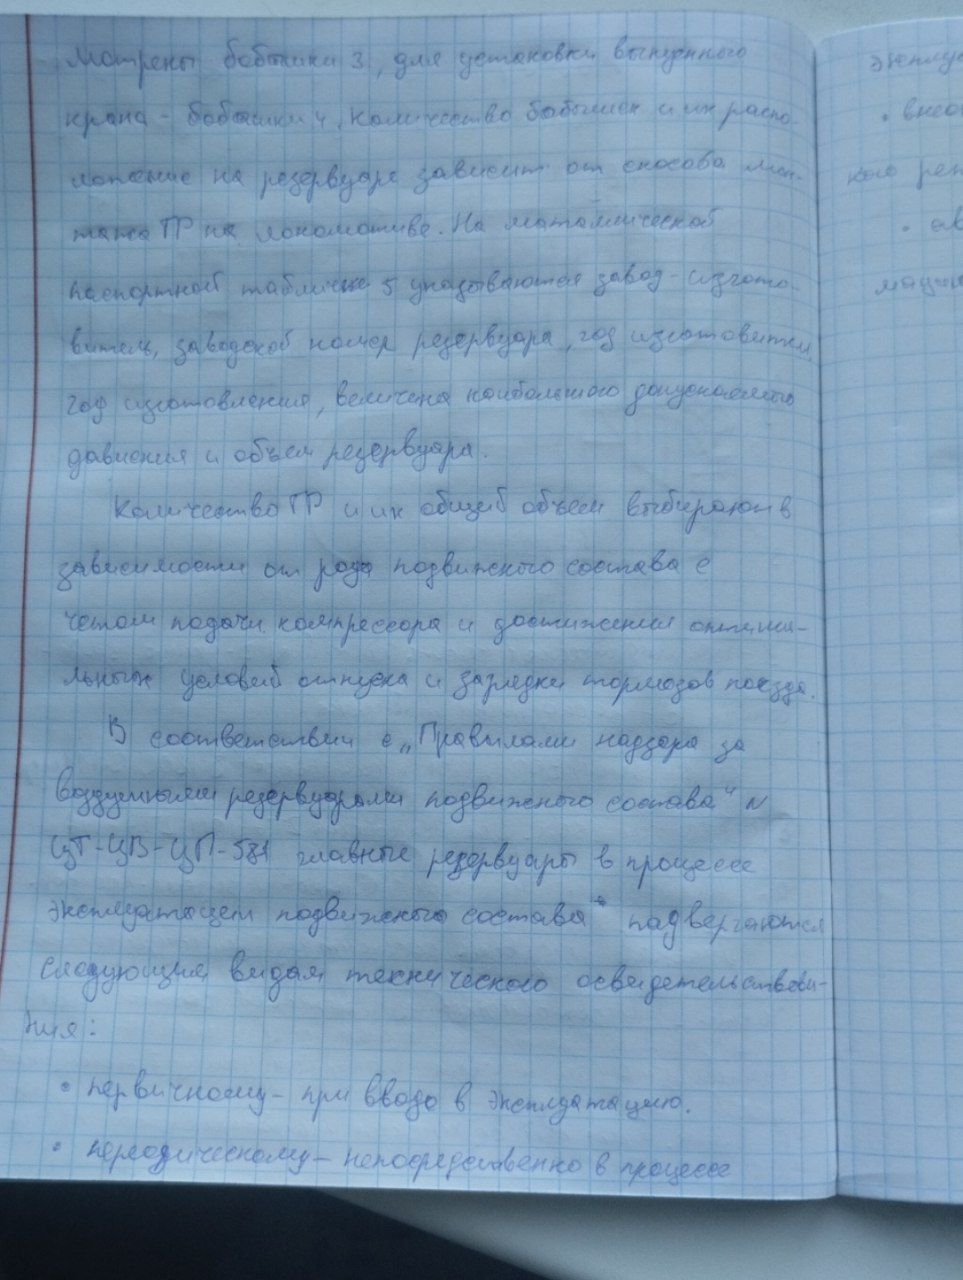 мотрены бобышки 3, для установки выпускного
крана - бобышки 4. Количество бобышек и их распо-
ложение на резервуаре зависит от способа мон-
тажа ГР на локомотиве. На металлической
паспортной табличке 5 указываются завод-изгото-
витель, заводской номер резервуара, год изготовител
год изготовления, величина наибольшего допускаемого
давления и объем резервуара.
Количество ГР и их общий объем выбирают в
зависимости от рода подвижного состава с
учетом подачи компрессора и достижения оптима-
льных условий отпуска и зарядки тормозов поезда.
В соответствии с „Правилами надзора за
воздушными резервуарами подвижного состава" №
ЦТ-ЦВ-ЦП-581 главные резервуары в процессе
эксплуатации подвижного состава подвергаются
следующим видам технического освидетельствова-
ния:
• первичному - при вводе в эксплуатацию.
• периодическому - непосредственно в процессе